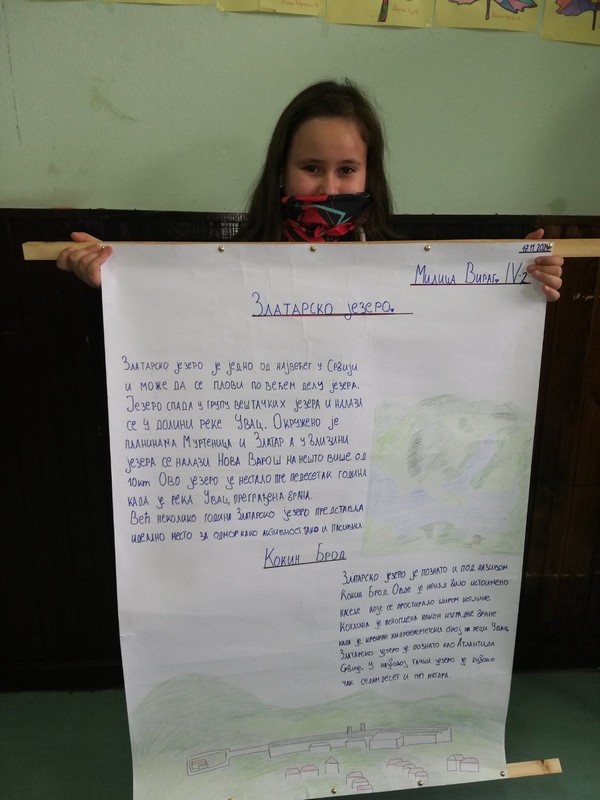 17.11.202
Милица Вираг. IV-2
Златарско језеро.
Златарско језеро је једно од највећег у Србији
и може да се плови по већем делу језера.
Језеро спада у групу вештачких језера и налази
се у долини реке Увац. Окружено је
планинама Муртеница и Златар а у близини
језера се налази Нова Варош на нешто више од
10km Ово језеро је нестало пре педесетак година
када је река Увац преграђена
Већ неколико година Златарско језеро представља
идеално место за одмор како активност тако и
Кокин Брод
Златарско језеро је познато и под називом
Кокин Брод. Овде је некад било истоимено
насеље које се простирало широм котлине.
Котлина је потопљена након изградње бране
када је креиран хидроенергетски на реци Увац
Златарско језеро је познато као Атлантида
Србије. У најдубљој тачки језеро је дубоко
чак седамдесет и пет метара.